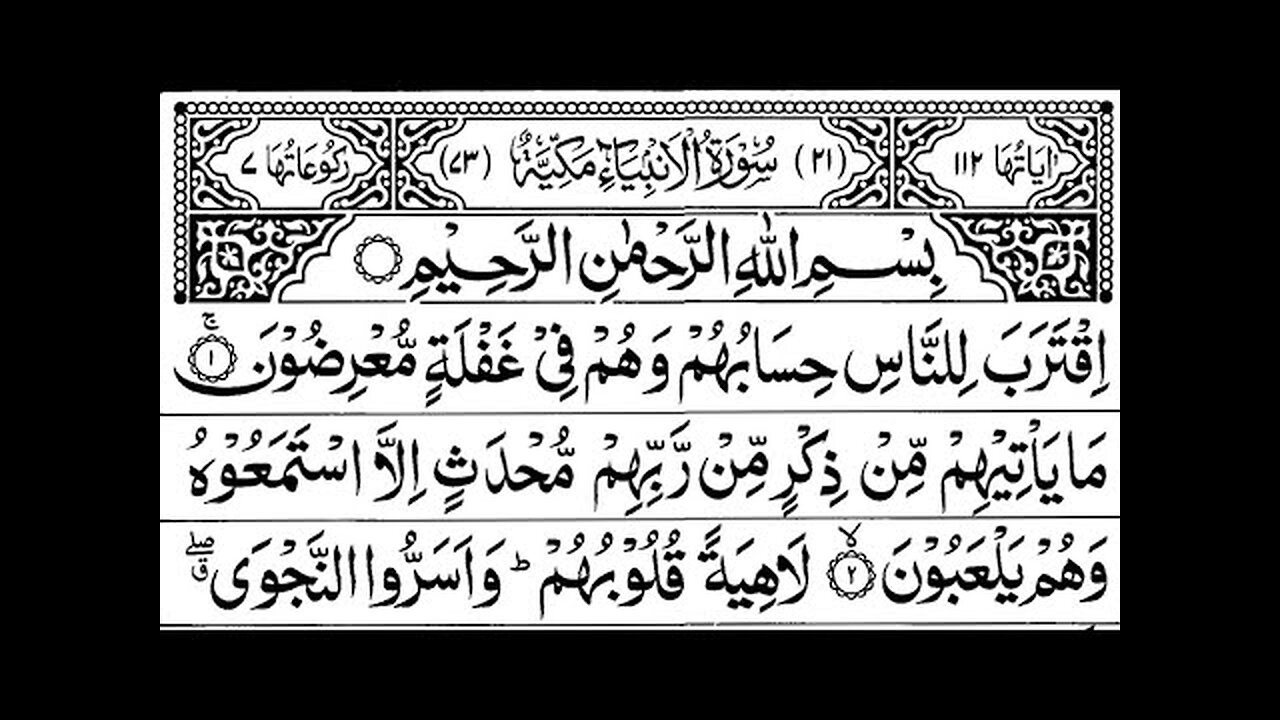 اٰيَاتُهَا ١١٢ (٢١) سُوْرَةُ الْاَنْبِيَآءِ مَكِّيَّةٌ (٧٣) رُكُوْعَاتُهَا ٧
بِسْمِ اللّٰهِ الرَّحْمٰنِ الرَّحِيْمِ
اِقْتَرَبَ لِلنَّاسِ حِسَابُهُمْ وَهُمْ فِيْ غَفْلَةٍ مُّعْرِضُوْنَ ۚ ١
مَا يَاْتِيْهِمْ مِّنْ ذِكْرٍ مِّنْ رَّبِّهِمْ مُّحْدَثٍ اِلَّا اسْتَمَعُوْهُ
وَهُمْ يَلْعَبُوْنَ ۙ ٢ لَاهِيَةً قُلُوْبُهُمْ ؕ وَاَسَرُّوا النَّجْوَى ۖق